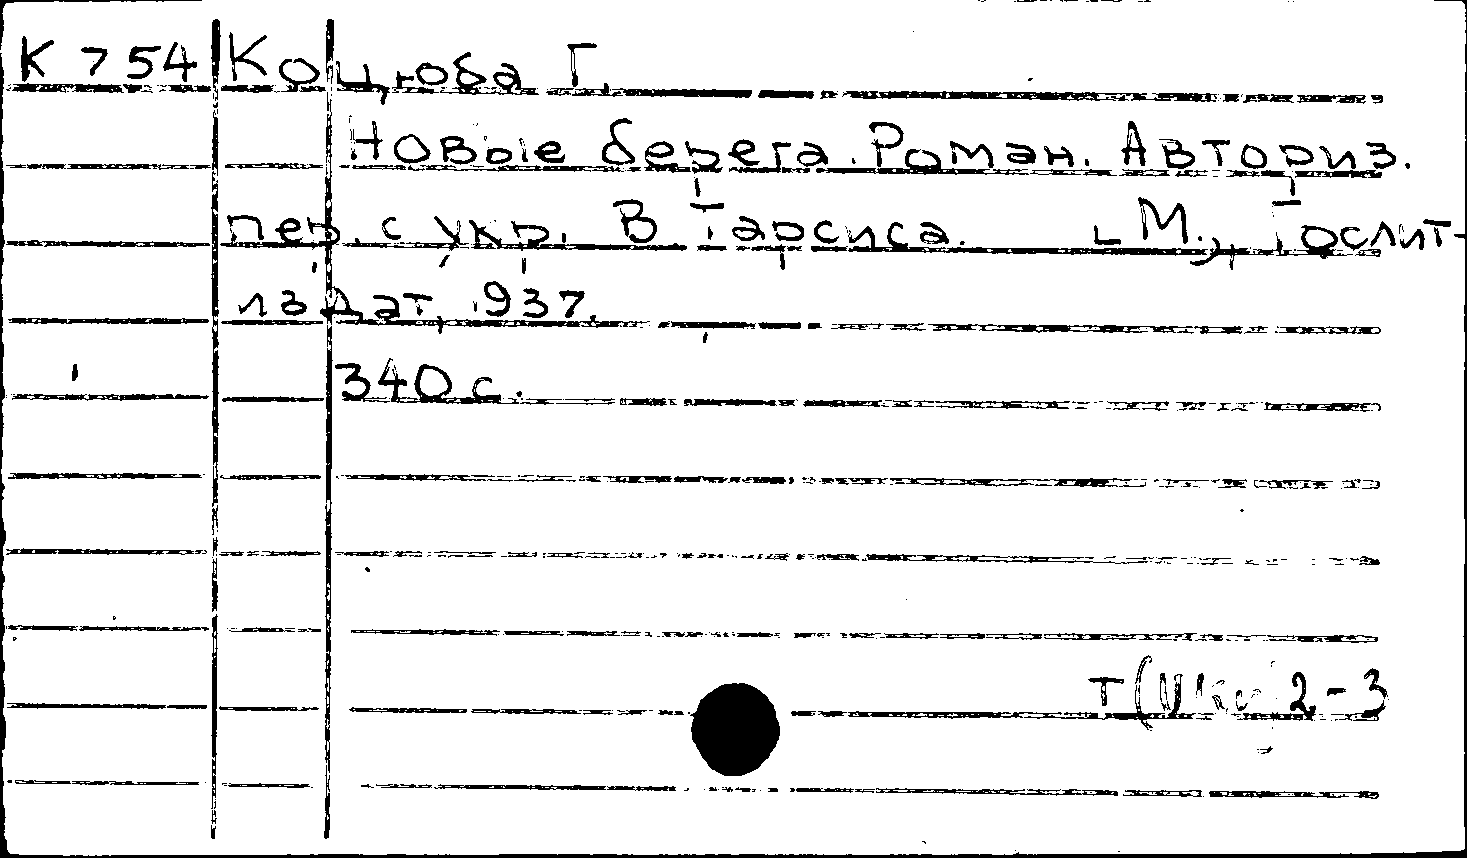 К 754 Коцюба Г.
Новые берега. Роман. Авториз.
пер. с укр. В Тарсиса. [М.], Гослит-
издат, 1937.
340 с.
Т(Укр) 2-3